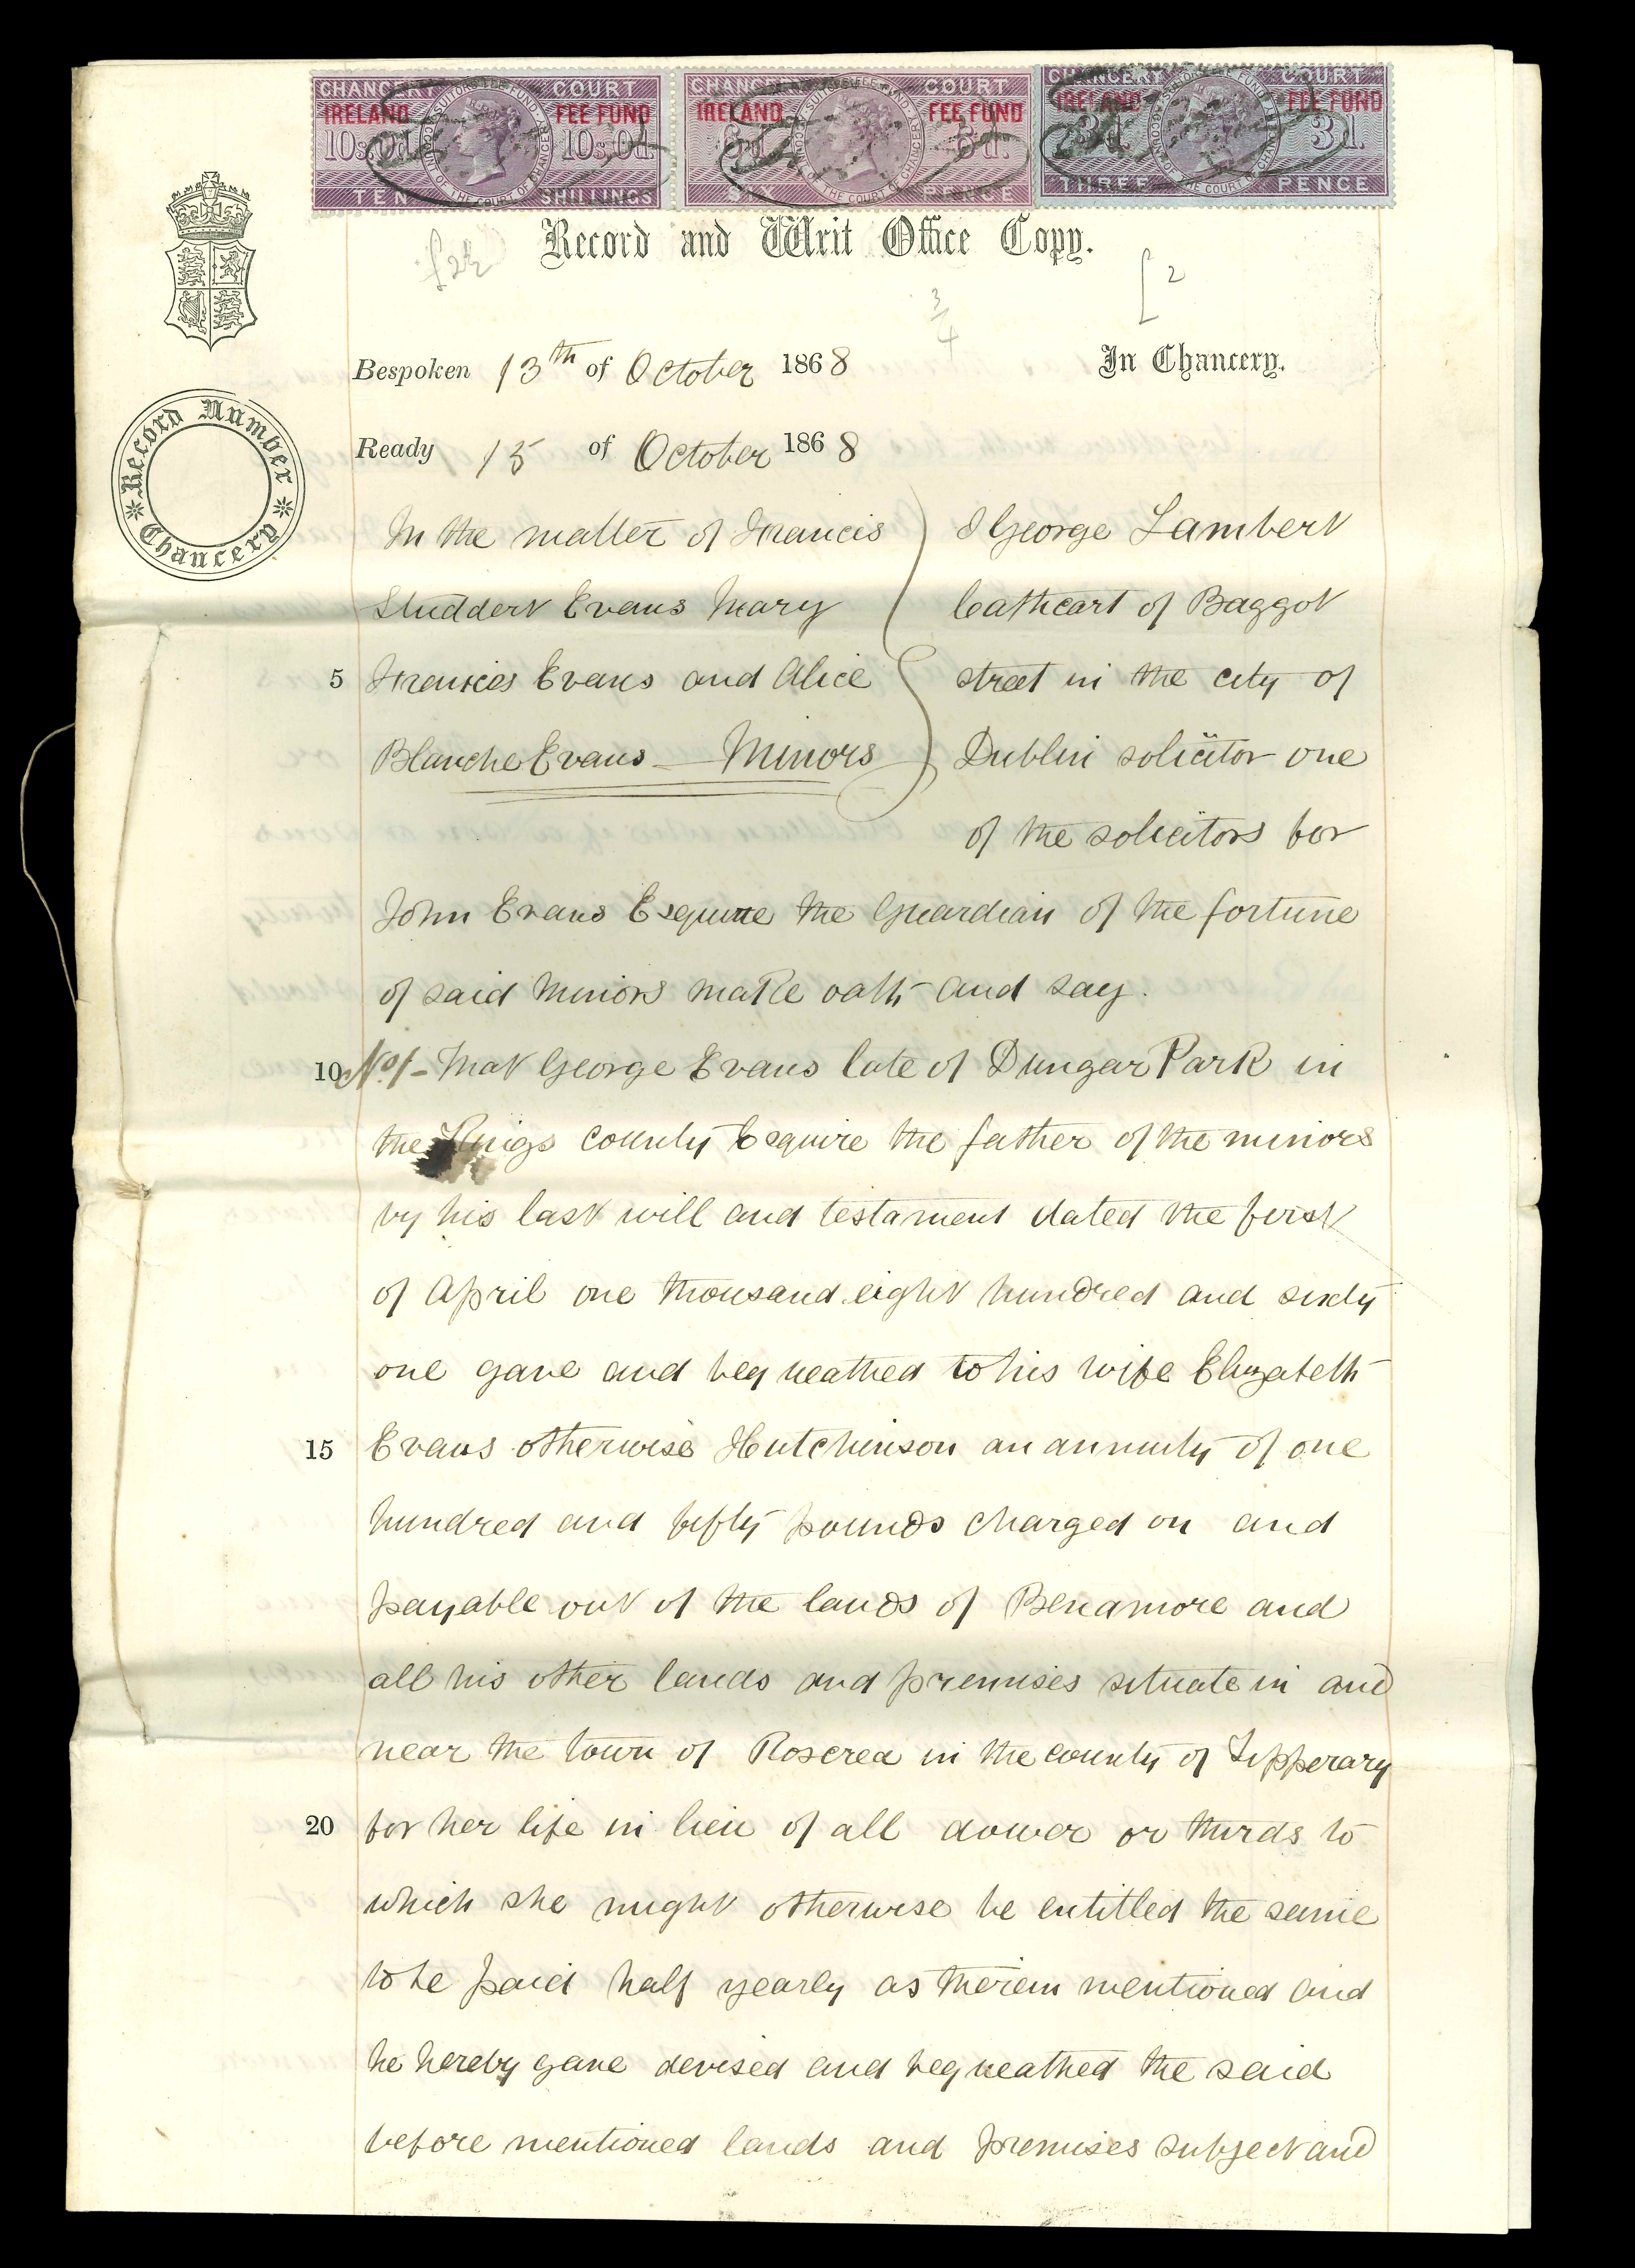 CHANCERY COURT
IRELAND FEE FUND
10s.0d. 10s.0d.
TEN SHILLINGS
CHANCERY COURT
IRELAND FEE FUND
6d. 6d.
SIX PENCE
CHANCERY COURT
IRELAND FEE FUND
3d. 3d.
THREE PENCE
Record and Writ Office Copy.
2
3/4
Bespoken 13th of October 1868
In Chancery.
Record Number
Chancery
Ready 15 of October 1868
In the matter of Francis
Studdert Evans Mary
5 Frances Evans and Alice
Blanche Evans — Minors
I George Lambert
Cathcart of Baggot
street in the city of
Dublin solicitor one
of the solicitors for
John Evans Esquire the Guardian of the fortune
of said minors make oath and say.
10 No 1 – That George Evans late of Dungar Park in
the Kings county Esquire the father of the minors
by his last will and testament dated the first
of April one thousand eight hundred and sixty
one gave and bequeathed to his wife Elizabeth
15 Evans otherwise Hutchinson an annuity of one
hundred and fifty pounds charged on and
payable out of the lands of Benamore and
all his other lands and premises situate in and
near the town of Roscrea in the county of Tipperary
20 for her life in lieu of all dower or thirds to
which she might otherwise be entitled the same
to be paid half yearly as therein mentioned and
he hereby gave devised and bequeathed the said
before mentioned lands and premises subject and